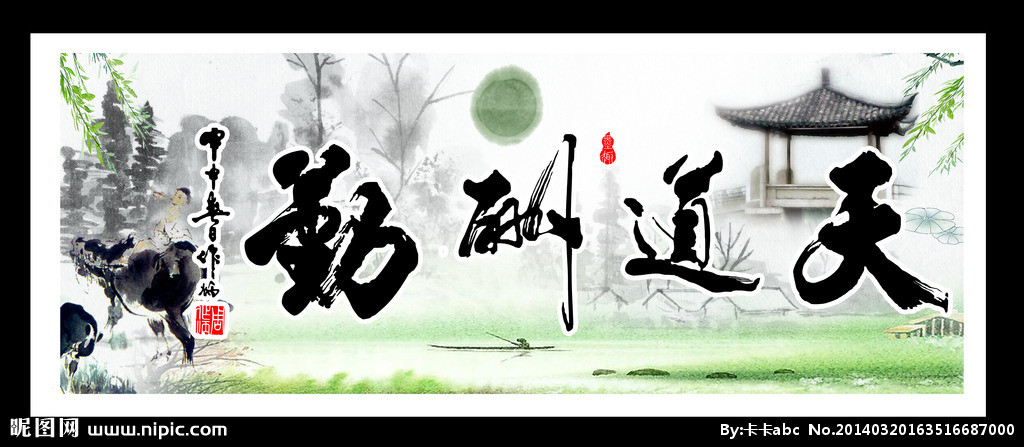 天道酬勤
昵图网 www.nipic.com
By:卡卡abc No.20140320163516687000